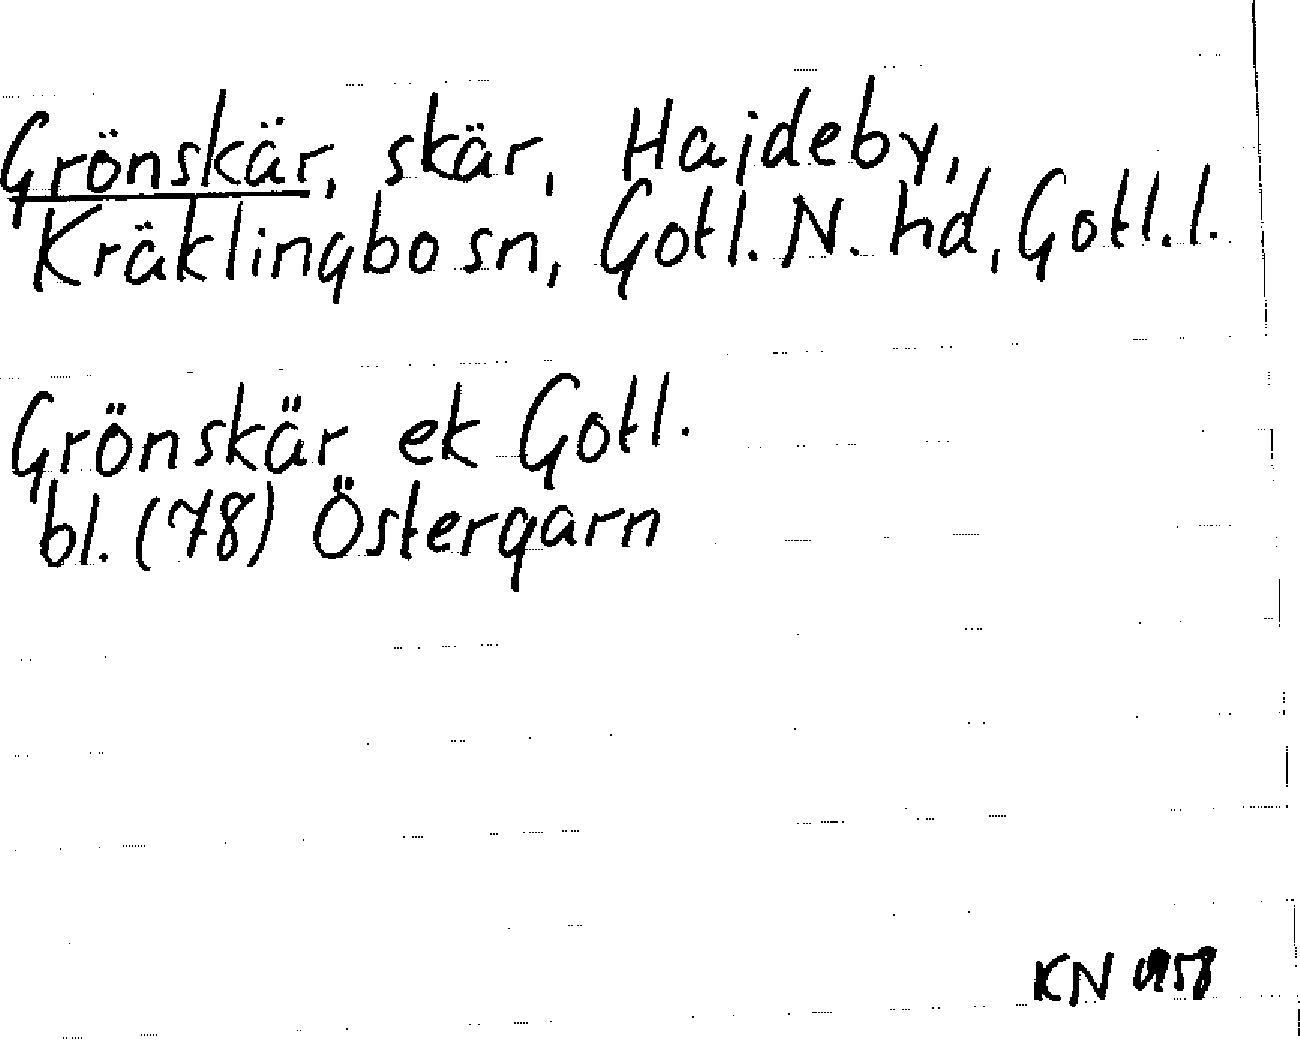 Grönskär, skär, Hajdeby,
Kräklingbo sn, Gotl. N. hd, Gotl. l.
Grönskär ek Gotl.
bl. (78) Östergarn
KN 1958